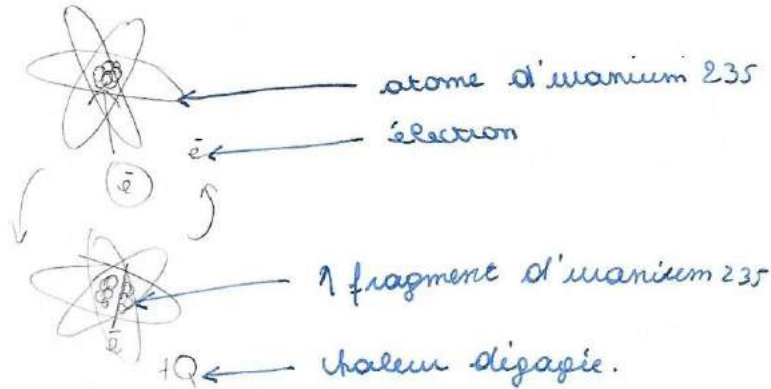 atome d'uranium 235
électron
ē
ē
1 fragment d'uranium 235
ē
+Q
chaleur dégagée.